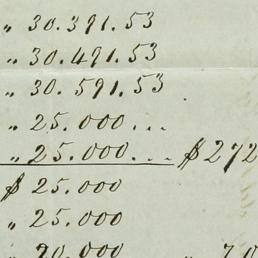 „ 30.391.53
„ 30.491.53
„ 30.591.53
„ 25.000...
„ 25.000... $272
$ 25.000
„ 25.000
„ 20.000 „ 70